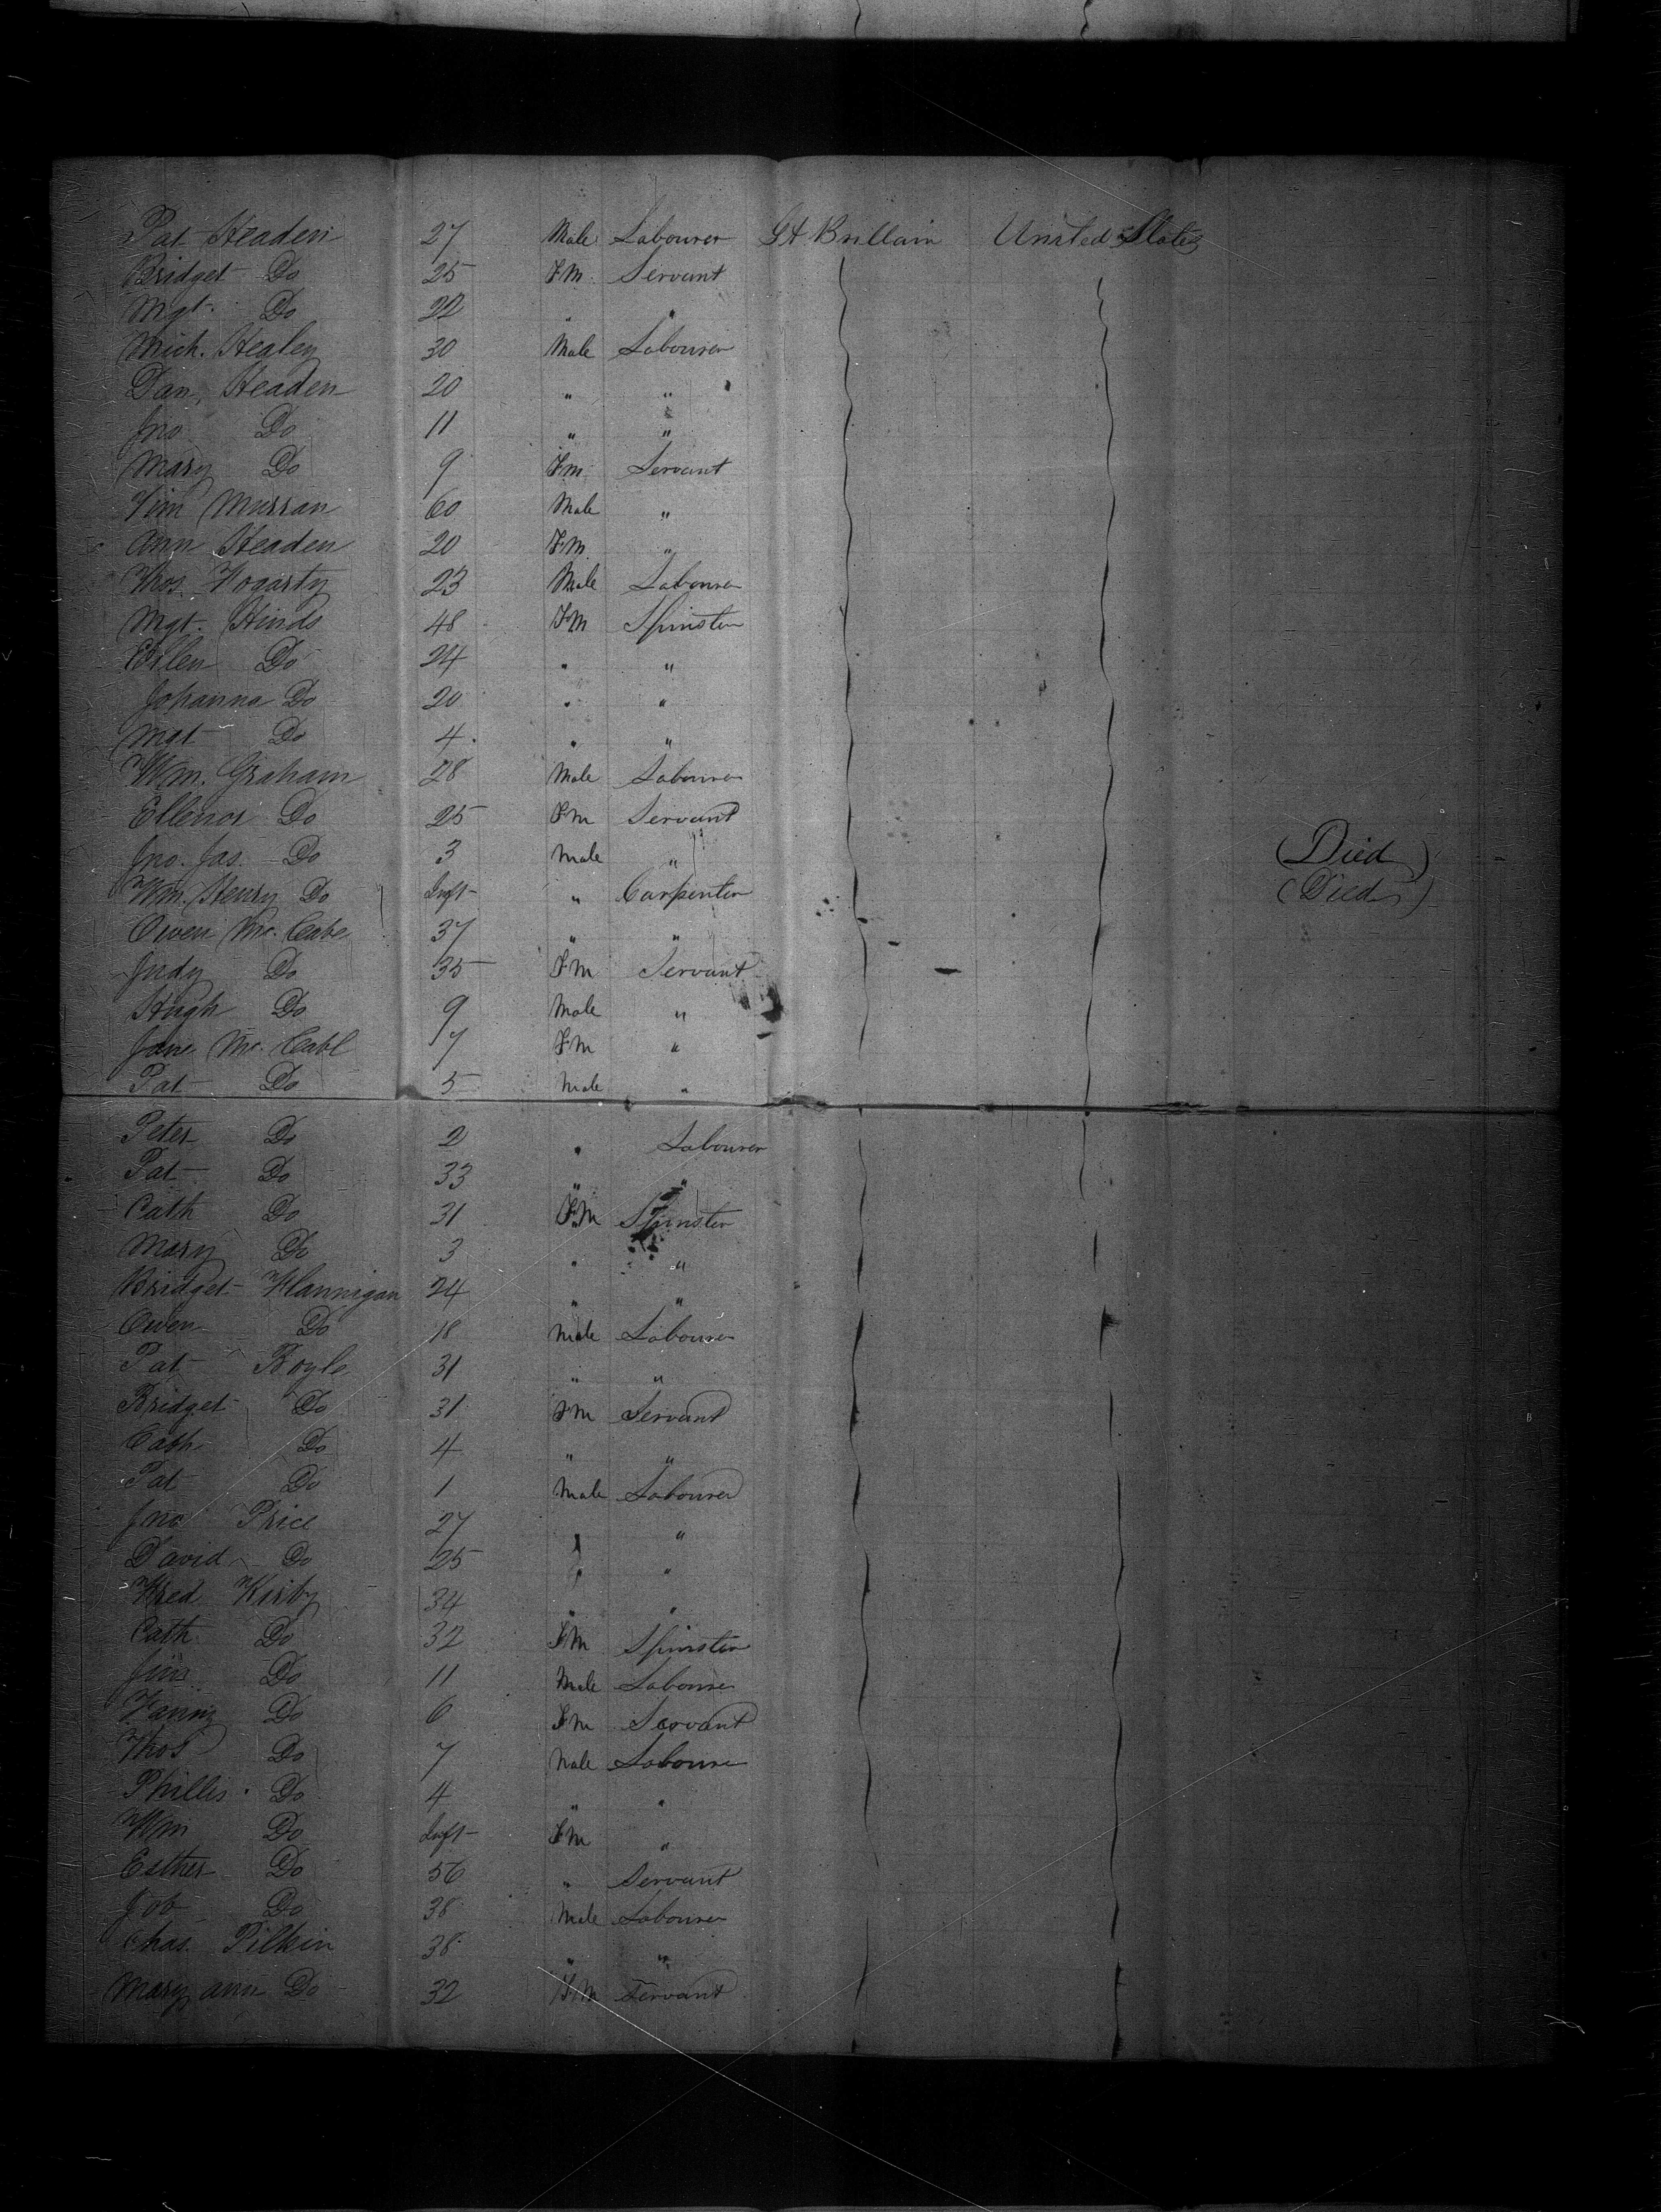 Pat Headen 27 Male Labourer Gt Brittain United States
Bridget Do 25 Fm Servant
Mgt. Do 22 " "
Mich. Healey 30 Male Labourer
Dan. Headen 20 " "
Jno Do 11 " "
Mary Do 9 Fm Servant
Tim Murran 60 Male "
Ann Headen 20 Fm "
Thos. Fogarty 23 Male Labourer
Mgt. Hinds 48 Fm Spinster
Ellen Do 24 " "
Johanna Do 20 " "
Mgt Do 4 " "
Wm. Graham 28 Male Labourer
Ellenor Do 25 Fm Servant
Jno. Jas. Do 3 Male " (Died)
Wm. Henry Do Inft " Carpenter (Died)
Owen Mc. Cabe 37 " "
Judy Do 35 Fm Servant
Hugh Do 9 Male "
Jane Mc. Cabe 7 Fm "
Pat Do 5 Male "
Peter Do 2 " Labourer
Pat Do 33 " "
Cath Do 31 Fm Spinster
Mary Do 3 " "
Bridget Flannigan 24 " "
Owen Do 18 Male Labourer
Pat Boyle 31 " "
Bridget Do 31 Fm Servant
Cath Do 4 " "
Pat Do 1 Male Labourer
Jno Price 27 " "
David Do 25 " "
Fred Kirby 34 " "
Cath. Do 32 Fm Spinster
Do 11 Male Labourer
Fanny Do 6 Fm Servant
Thos Do 7 Male Labourer
Phillis Do 4 " "
Wm Do Inft Fm "
Esther Do 56 " Servant
Job Do 38 Male Labourer
Chas. Pilkin 38 " "
Mary ann Do 32 Fm Servant